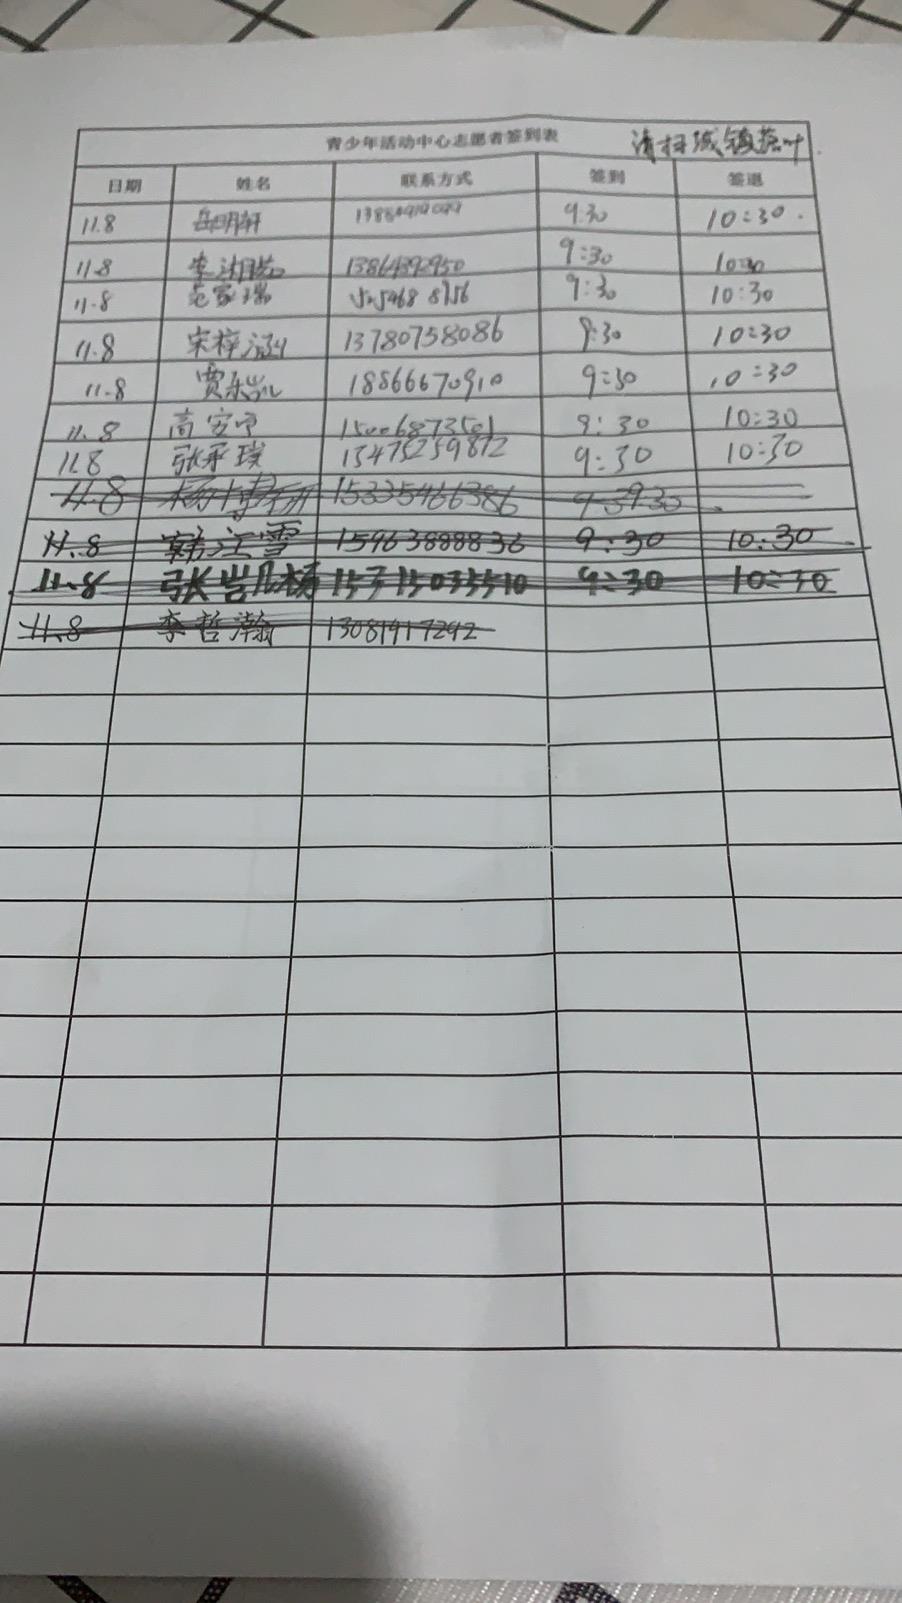 青少年活动中心志愿者签到表 清扫城镇落叶
日期 姓名 联系方式 签到 签退
11.8 岳明轩 9:30 10:30
11.8 10:30 9:30
11.8 范家瑞 9:30 10:30
11.8 宋梓涵 13780758086 9:30 10:30
11.8 贾乐凯 18866670910 9:30 10:30
11.8 高安宁 9:30 10:30
11.8 张承璞 13475259872 9:30 10:30
11.8 杨博 15335466386
11.8 韩江雪 15963888836 9:30 10:30
11.8 张岂凡杨 15315033510 9:30 10:30
11.8 李哲瀚 13081917292